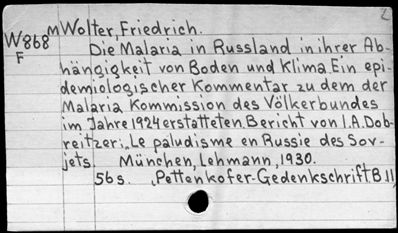 2
M Wolter, Friedrich.
W868
F
Die Malaria in Russland in ihrer Ab-
hängigkeit von Boden und Klima. Ein epi-
demiologischer Kommentar zu dem der
Malaria Kommission des Völkerbundes
im Jahre 1924 erstatteten Bericht von I.A. Dob-
reitzer: „Le paludisme en Russie des Sov-
jets. München, Lehmann, 1930.
56 s. „Pettenkofer-Gedenkschrift B.11